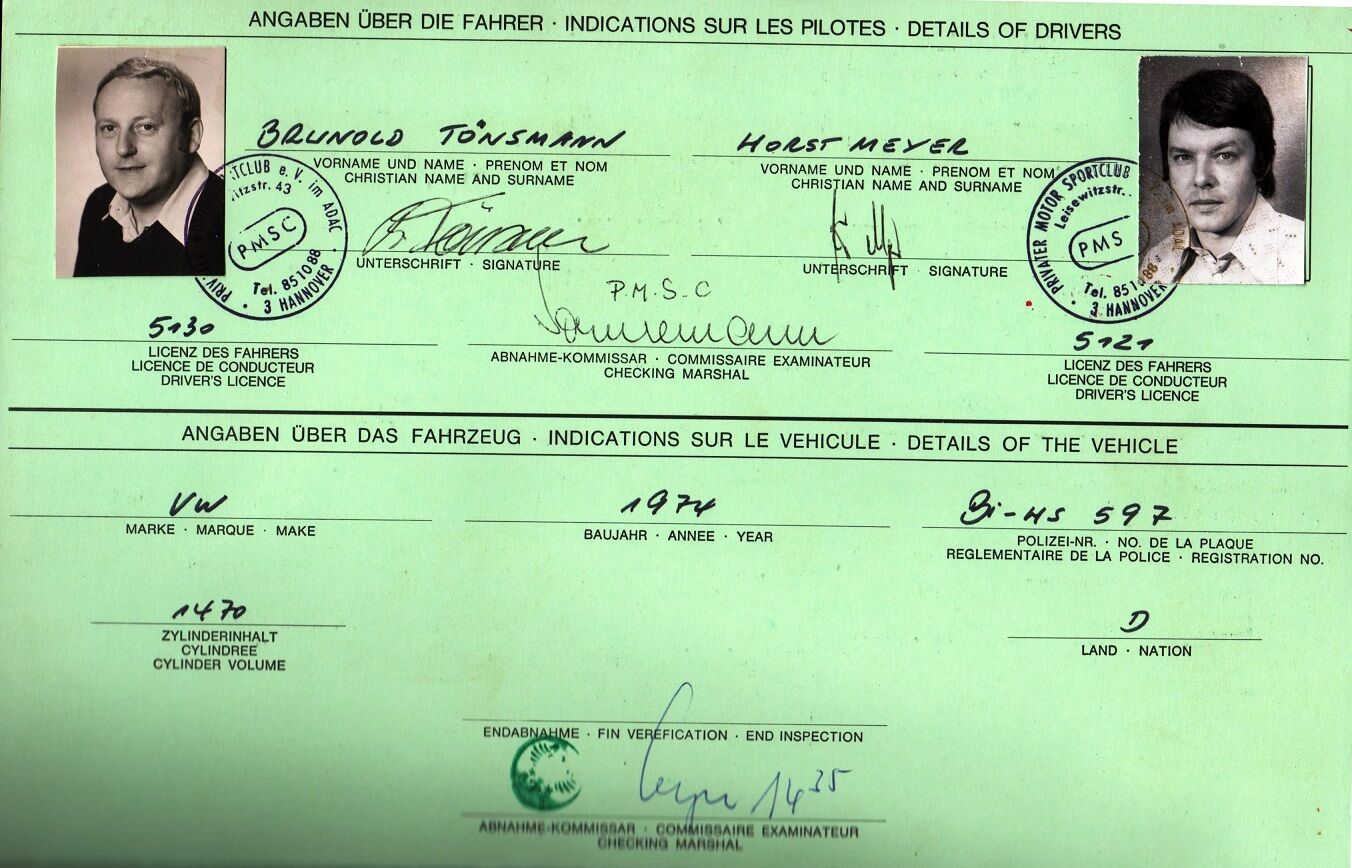 ANGABEN ÜBER DIE FAHRER · INDICATIONS SUR LES PILOTES · DETAILS OF DRIVERS
BRUNOLD TÖNSMANN
HORST MEYER
VORNAME UND NAME · PRENOM ET NOM
CHRISTIAN NAME AND SURNAME
VORNAME UND NAME · PRENOM ET NOM
CHRISTIAN NAME AND SURNAME
RTCLUB e. V. im ADAC
itzstr. 43
PMSC
Tel. 85 10 88
· 3 HANNOVER ·
PRIVATER MOTOR SPORTCLUB
Leisewitzstr.
PMS
Tel. 851 88
· 3 HANNOVER
UNTERSCHRIFT · SIGNATURE
UNTERSCHRIFT · SIGNATURE
P.M.S.C
5130
5121
LICENZ DES FAHRERS
LICENCE DE CONDUCTEUR
DRIVER'S LICENCE
ABNAHME-KOMMISSAR · COMMISSAIRE EXAMINATEUR
CHECKING MARSHAL
LICENZ DES FAHRERS
LICENCE DE CONDUCTEUR
DRIVER'S LICENCE
ANGABEN ÜBER DAS FAHRZEUG · INDICATIONS SUR LE VEHICULE · DETAILS OF THE VEHICLE
VW
1974
Bi-HS 597
MARKE · MARQUE · MAKE
BAUJAHR · ANNEE · YEAR
POLIZEI-NR. · NO. DE LA PLAQUE
REGLEMENTAIRE DE LA POLICE · REGISTRATION NO.
1470
D
ZYLINDERINHALT
CYLINDREE
CYLINDER VOLUME
LAND · NATION
ENDABNAHME · FIN VEREFICATION · END INSPECTION
14 35
ABNAHME-KOMMISSAR · COMMISSAIRE EXAMINATEUR
CHECKING MARSHAL